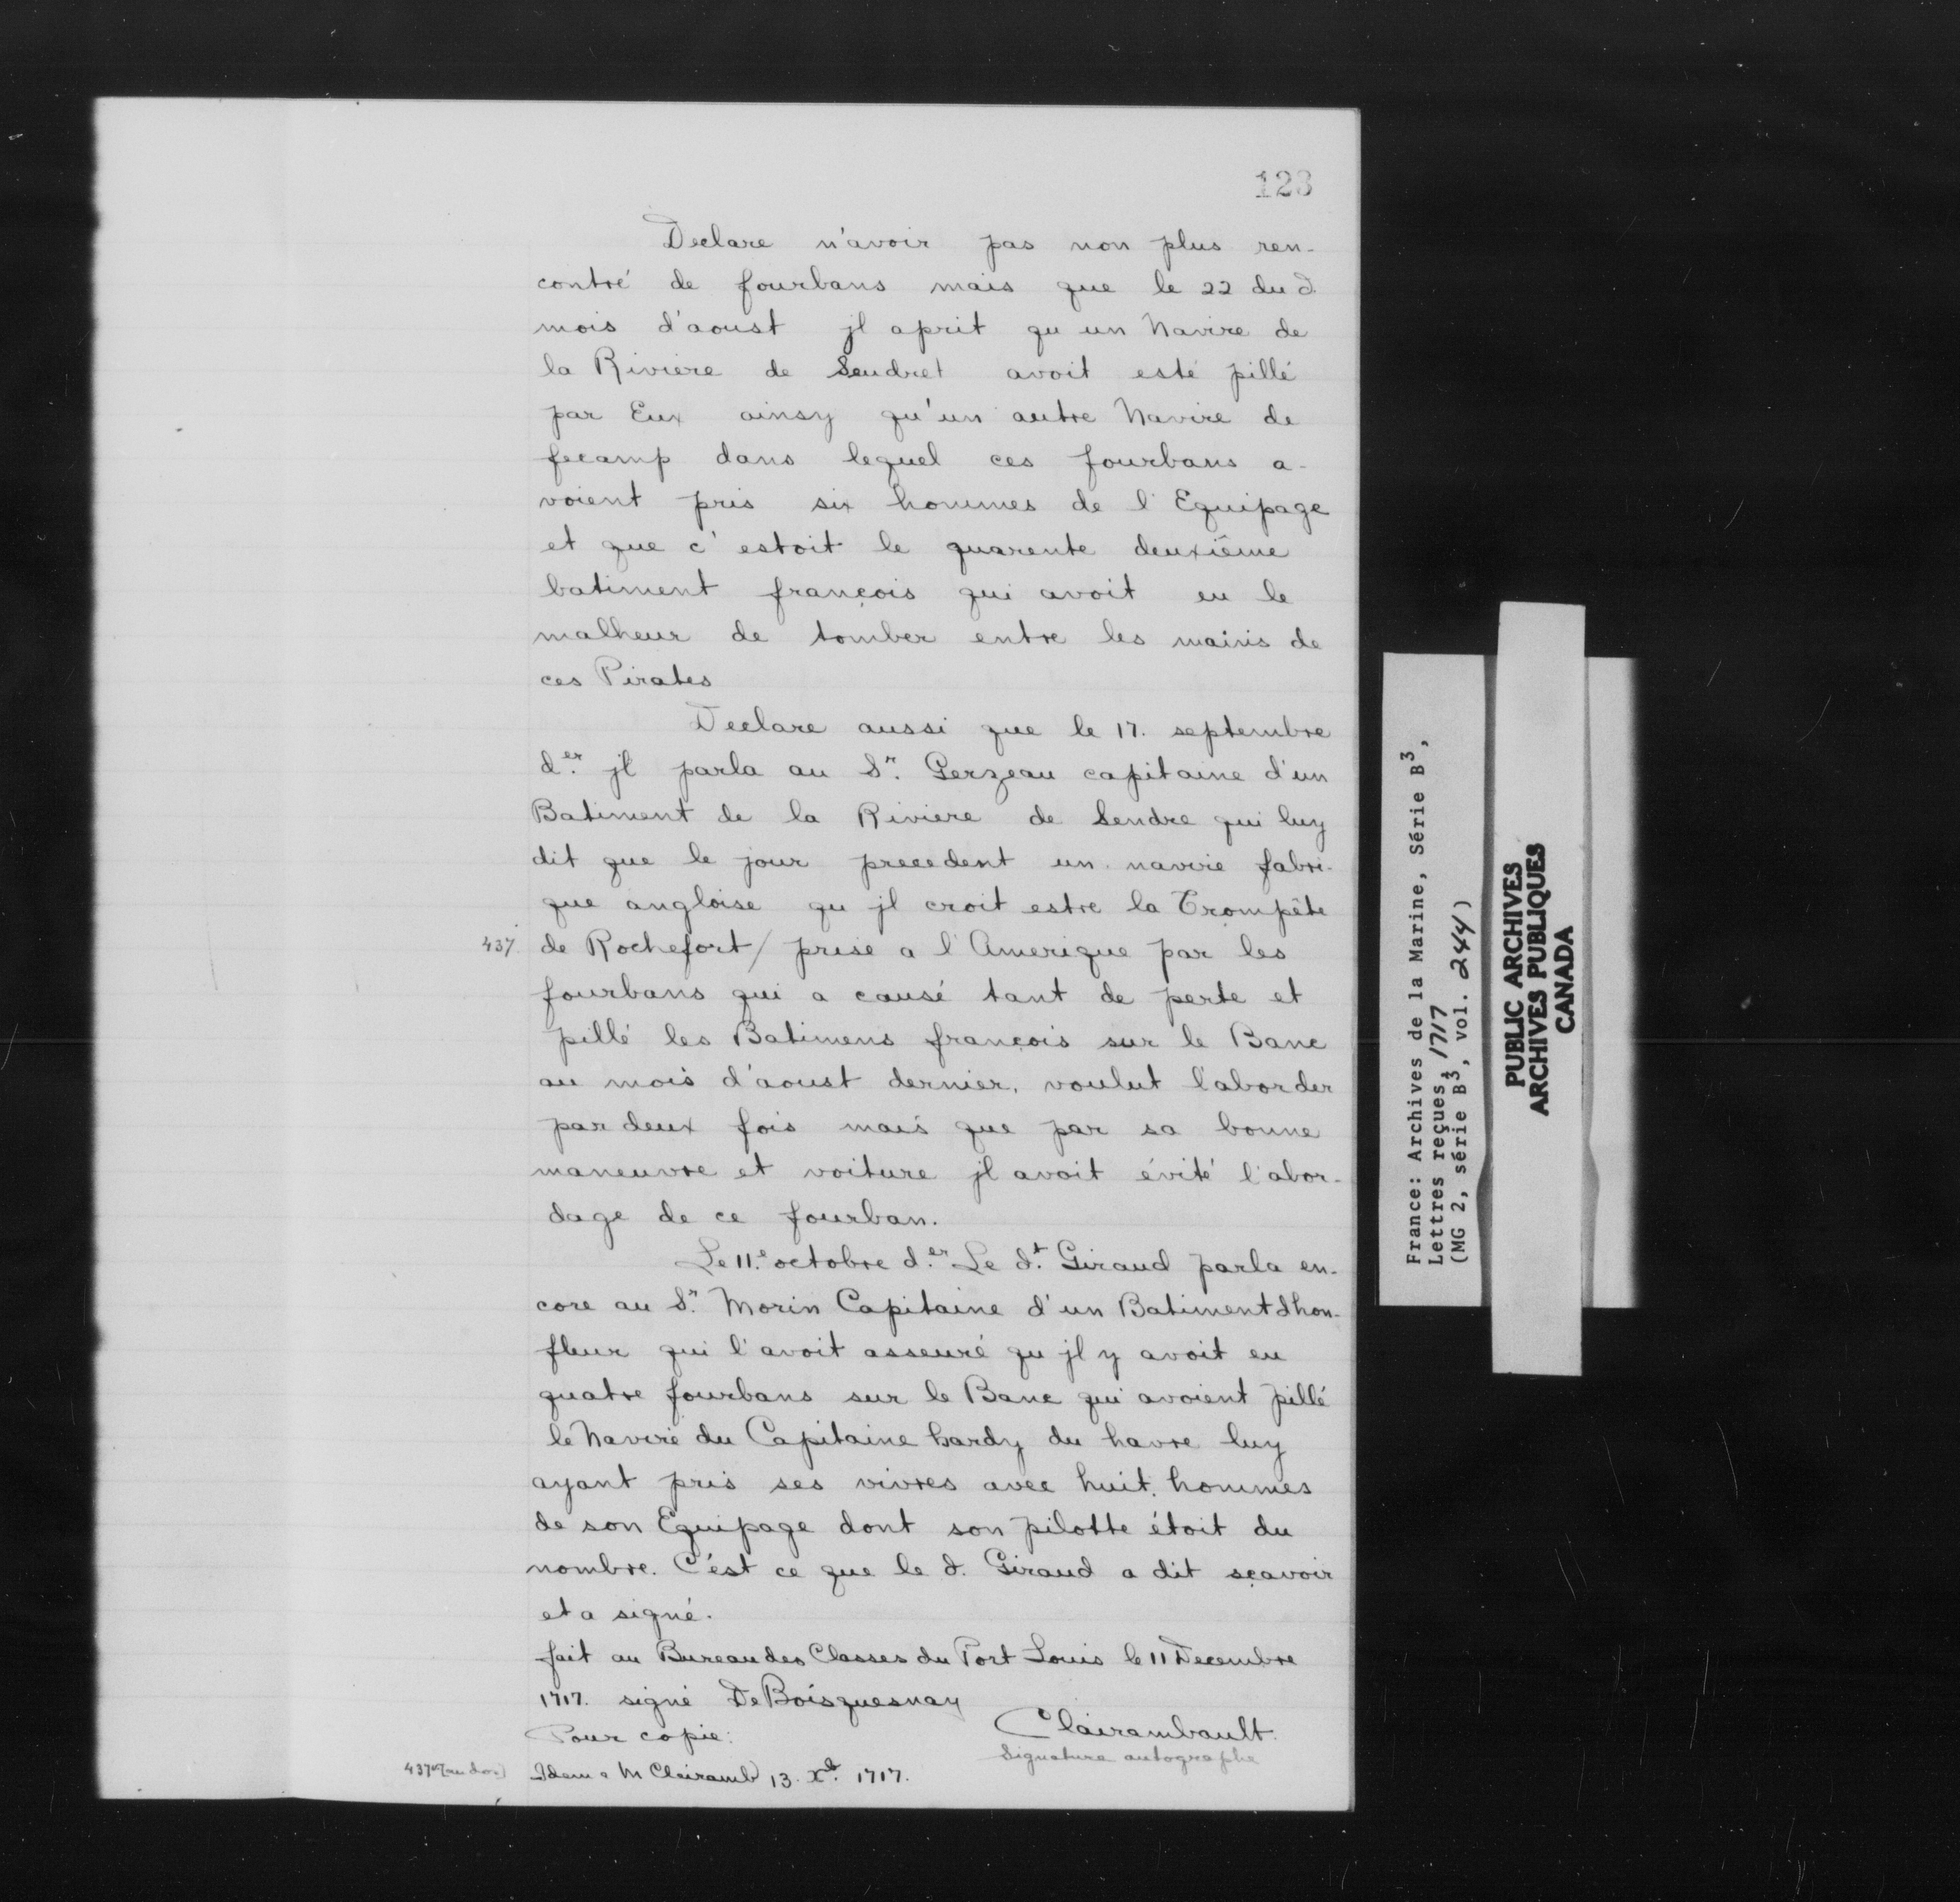 123
Declare n'avoir pas non plus ren-
contré de fourbans mais que le 22 du d.
mois d'aoust jl aprit qu un Navire de
la Riviere de Seudret avoit esté pillé
par Eux ainsy qu'un autre Navire de
fecamp dans lequel ces fourbans a-
voient pris six hommes de l'Equipage
et que c'estoit le quarente deuxiême
batiment françois qui avoit eu le
malheur de tomber entre les mains de
ces Pirates
Declare aussi que le 17. septembre
d.er jl parla au Sr. Gerzeau capitaine d'un
Batiment de la Riviere de Sendre qui luy
dit que le jour precedent un navire fabri-
que angloise qu jl croit estre la Trompête
437. de Rochefort / prise a l'Amerique par les
fourbans qui a causé tant de perte et
pillé les Batimens françois sur le Banc
au mois d'aoust dernier, voulut l'aborder
par deux fois mais que par sa bonne
maneuvre et voiture jl avoit évité l'abor-
dage de ce fourban.
Le 11.e octobre d.er Le d.t Giraud parla en-
core au Sr. Morin Capitaine d'un Batiment dhon-
fleur qui l'avoit asseuré qu jl y avoit eu
quatre fourbans sur le Banc qui avoient pillé
le Navire du Capitaine hardy du havre luy
ayant pris ses vivres avec huit. hommes
de son Equipage dont son pilotte étoit du
nombre. C'est ce que le d. Giraud a dit sçavoir
et a signé.
fait au Bureau des Classes du Port Louis le 11 Decembre
1717. signé De Boisquesnay
Pour copie: Clairambault.
Signature autographe
437vo (au dos) Idem a M Clairamb 13. Xb. 1717.
France: Archives de la Marine, Série B3,
Lettres reçues, 1717
(MG 2, série B3, vol. 244)
PUBLIC ARCHIVES
ARCHIVES PUBLIQUES
CANADA